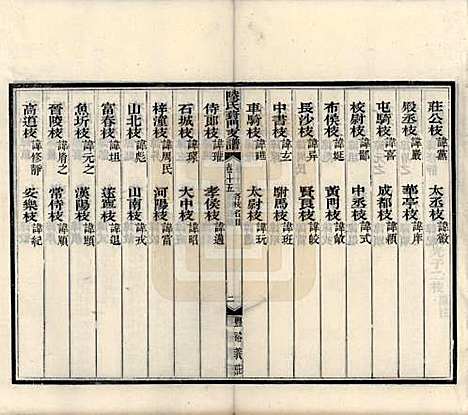 莊公枝 諱黨 太丞枝 諱徽
殿丞枝 諱嚴 華亭枝 諱庠
屯騎枝 諱喜 成都枝 諱穎
校尉枝 諱鄱 中丞枝 諱式
布侯枝 諱誕 黃門枝 諱敞
長沙枝 諱昇 賢良枝 諱皎
中書枝 諱玄 尉馬枝 諱班
車騎枝 諱曄 太尉枝 諱玩
陸氏葑門支譜 卷十五 各枝名目 二 豐裕義莊
侍郎枝 諱瓘 孝侯枝 諱邁
石城枝 諱 大中枝 諱昭
梓潼枝 諱周氏 河陽枝 諱棠
山北枝 諱彪 山南枝 諱戎
富春枝 諱坦 蓬萊枝 諱退
魚圻枝 諱元之 漢陽枝 諱顒
晉陵枝 諱膺之 常侍枝 諱順
高道枝 諱修靜 安樂枝 諱紀